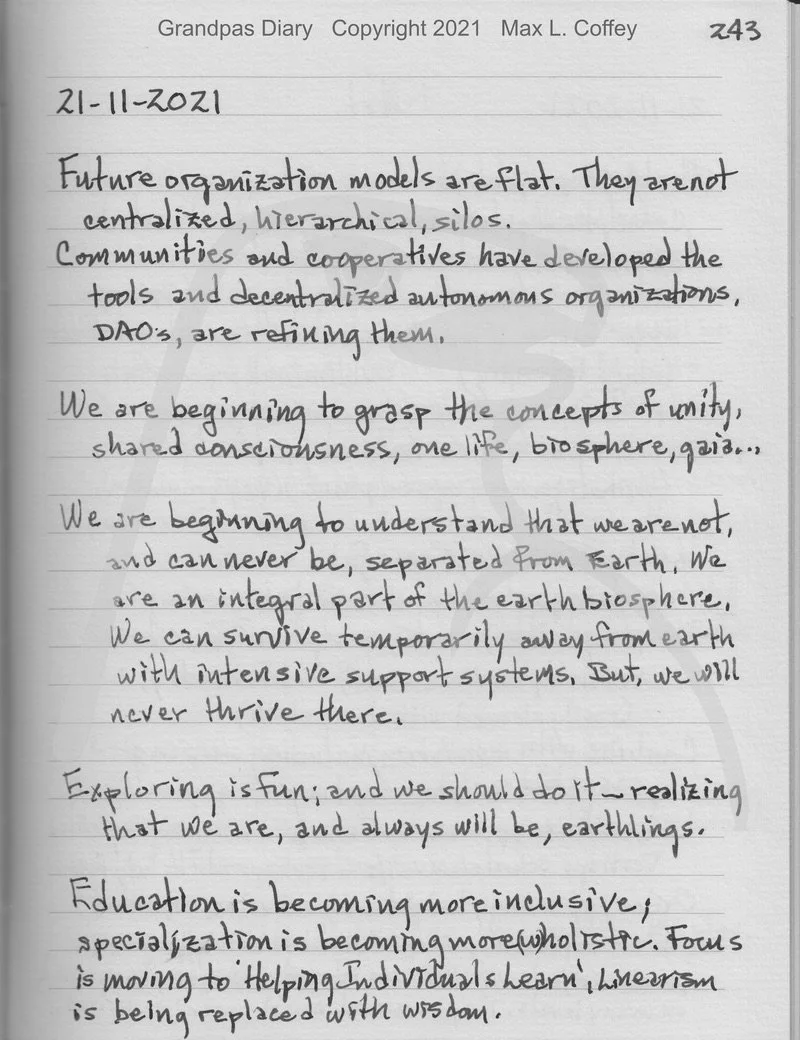 Grandpas Diary Copyright 2021 Max L. Coffey 243
21-11-2021
Future organization models are flat. They are not
centralized, hierarchical, silos.
Communities and cooperatives have developed the
tools and decentralized autonomous organizations,
DAO's, are refining them.
We are beginning to grasp the concepts of unity,
shared consciousness, one life, biosphere, gaia...
We are beginning to understand that we are not,
and can never be, separated from Earth. We
are an integral part of the earth biosphere.
We can survive temporarily away from earth
with intensive support systems. But, we will
never thrive there.
Exploring is fun; and we should do it - realizing
that we are, and always will be, earthlings.
Education is becoming more inclusive;
specialization is becoming more (w)holistic. Focus
is moving to 'Helping Individuals Learn'. Linearism
is being replaced with wisdom.